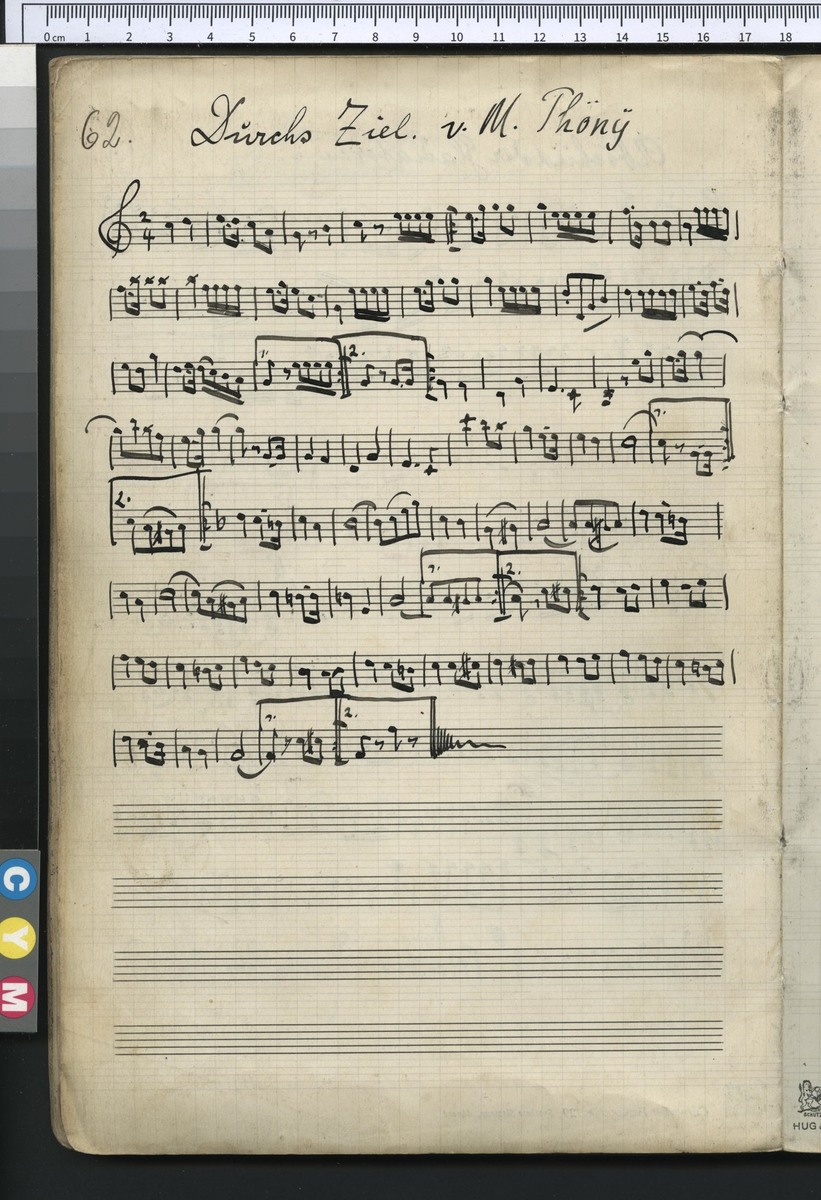 0 cm 1 2 3 4 5 6 7 8 9 10 11 12 13 14 15 16 17 18
62. Durchs Ziel. v. M. Thöny
2
4
1. 2.
1.
2.
1. 2.
1. 2.
C
Y
M
SCHUTZ
HUG &